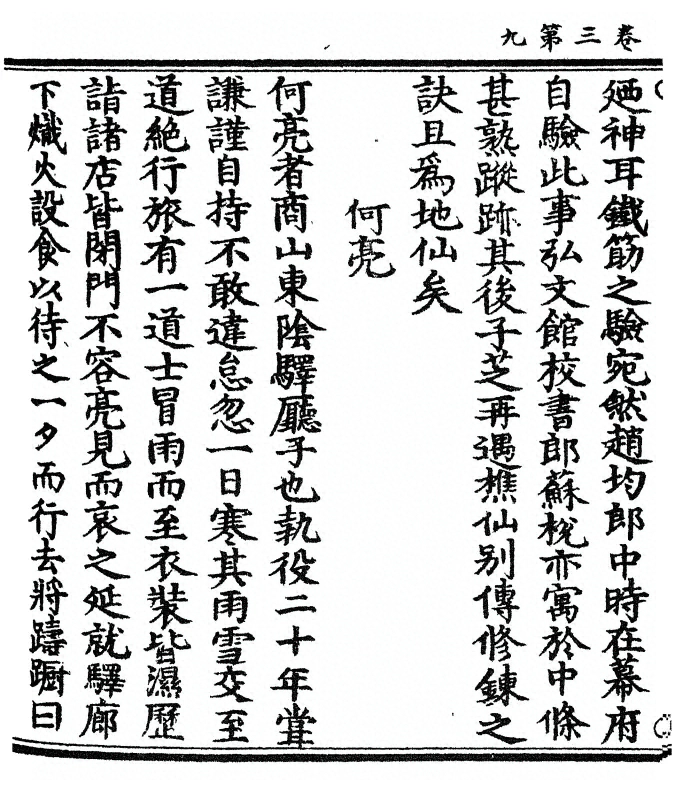 卷三第九
廼神耳鐵筯之驗宛然趙均郎中時在幕府
自驗此事弘文館校書郎蘇梲亦寓於中條
甚熟蹤跡其後子芝再遇樵仙别傳修鍊之
訣且為地仙矣
何亮
何亮者商山東陰驛廳子也執役二十年甞
謙謹自持不敢違怠忽一日寒其雨雪交至
道絕行旅有一道士冒雨而至衣裝皆濕歷
詣諸店皆閉門不容亮見而哀之延就驛廊
下熾火設食以待之一夕而行去將躊蹰曰